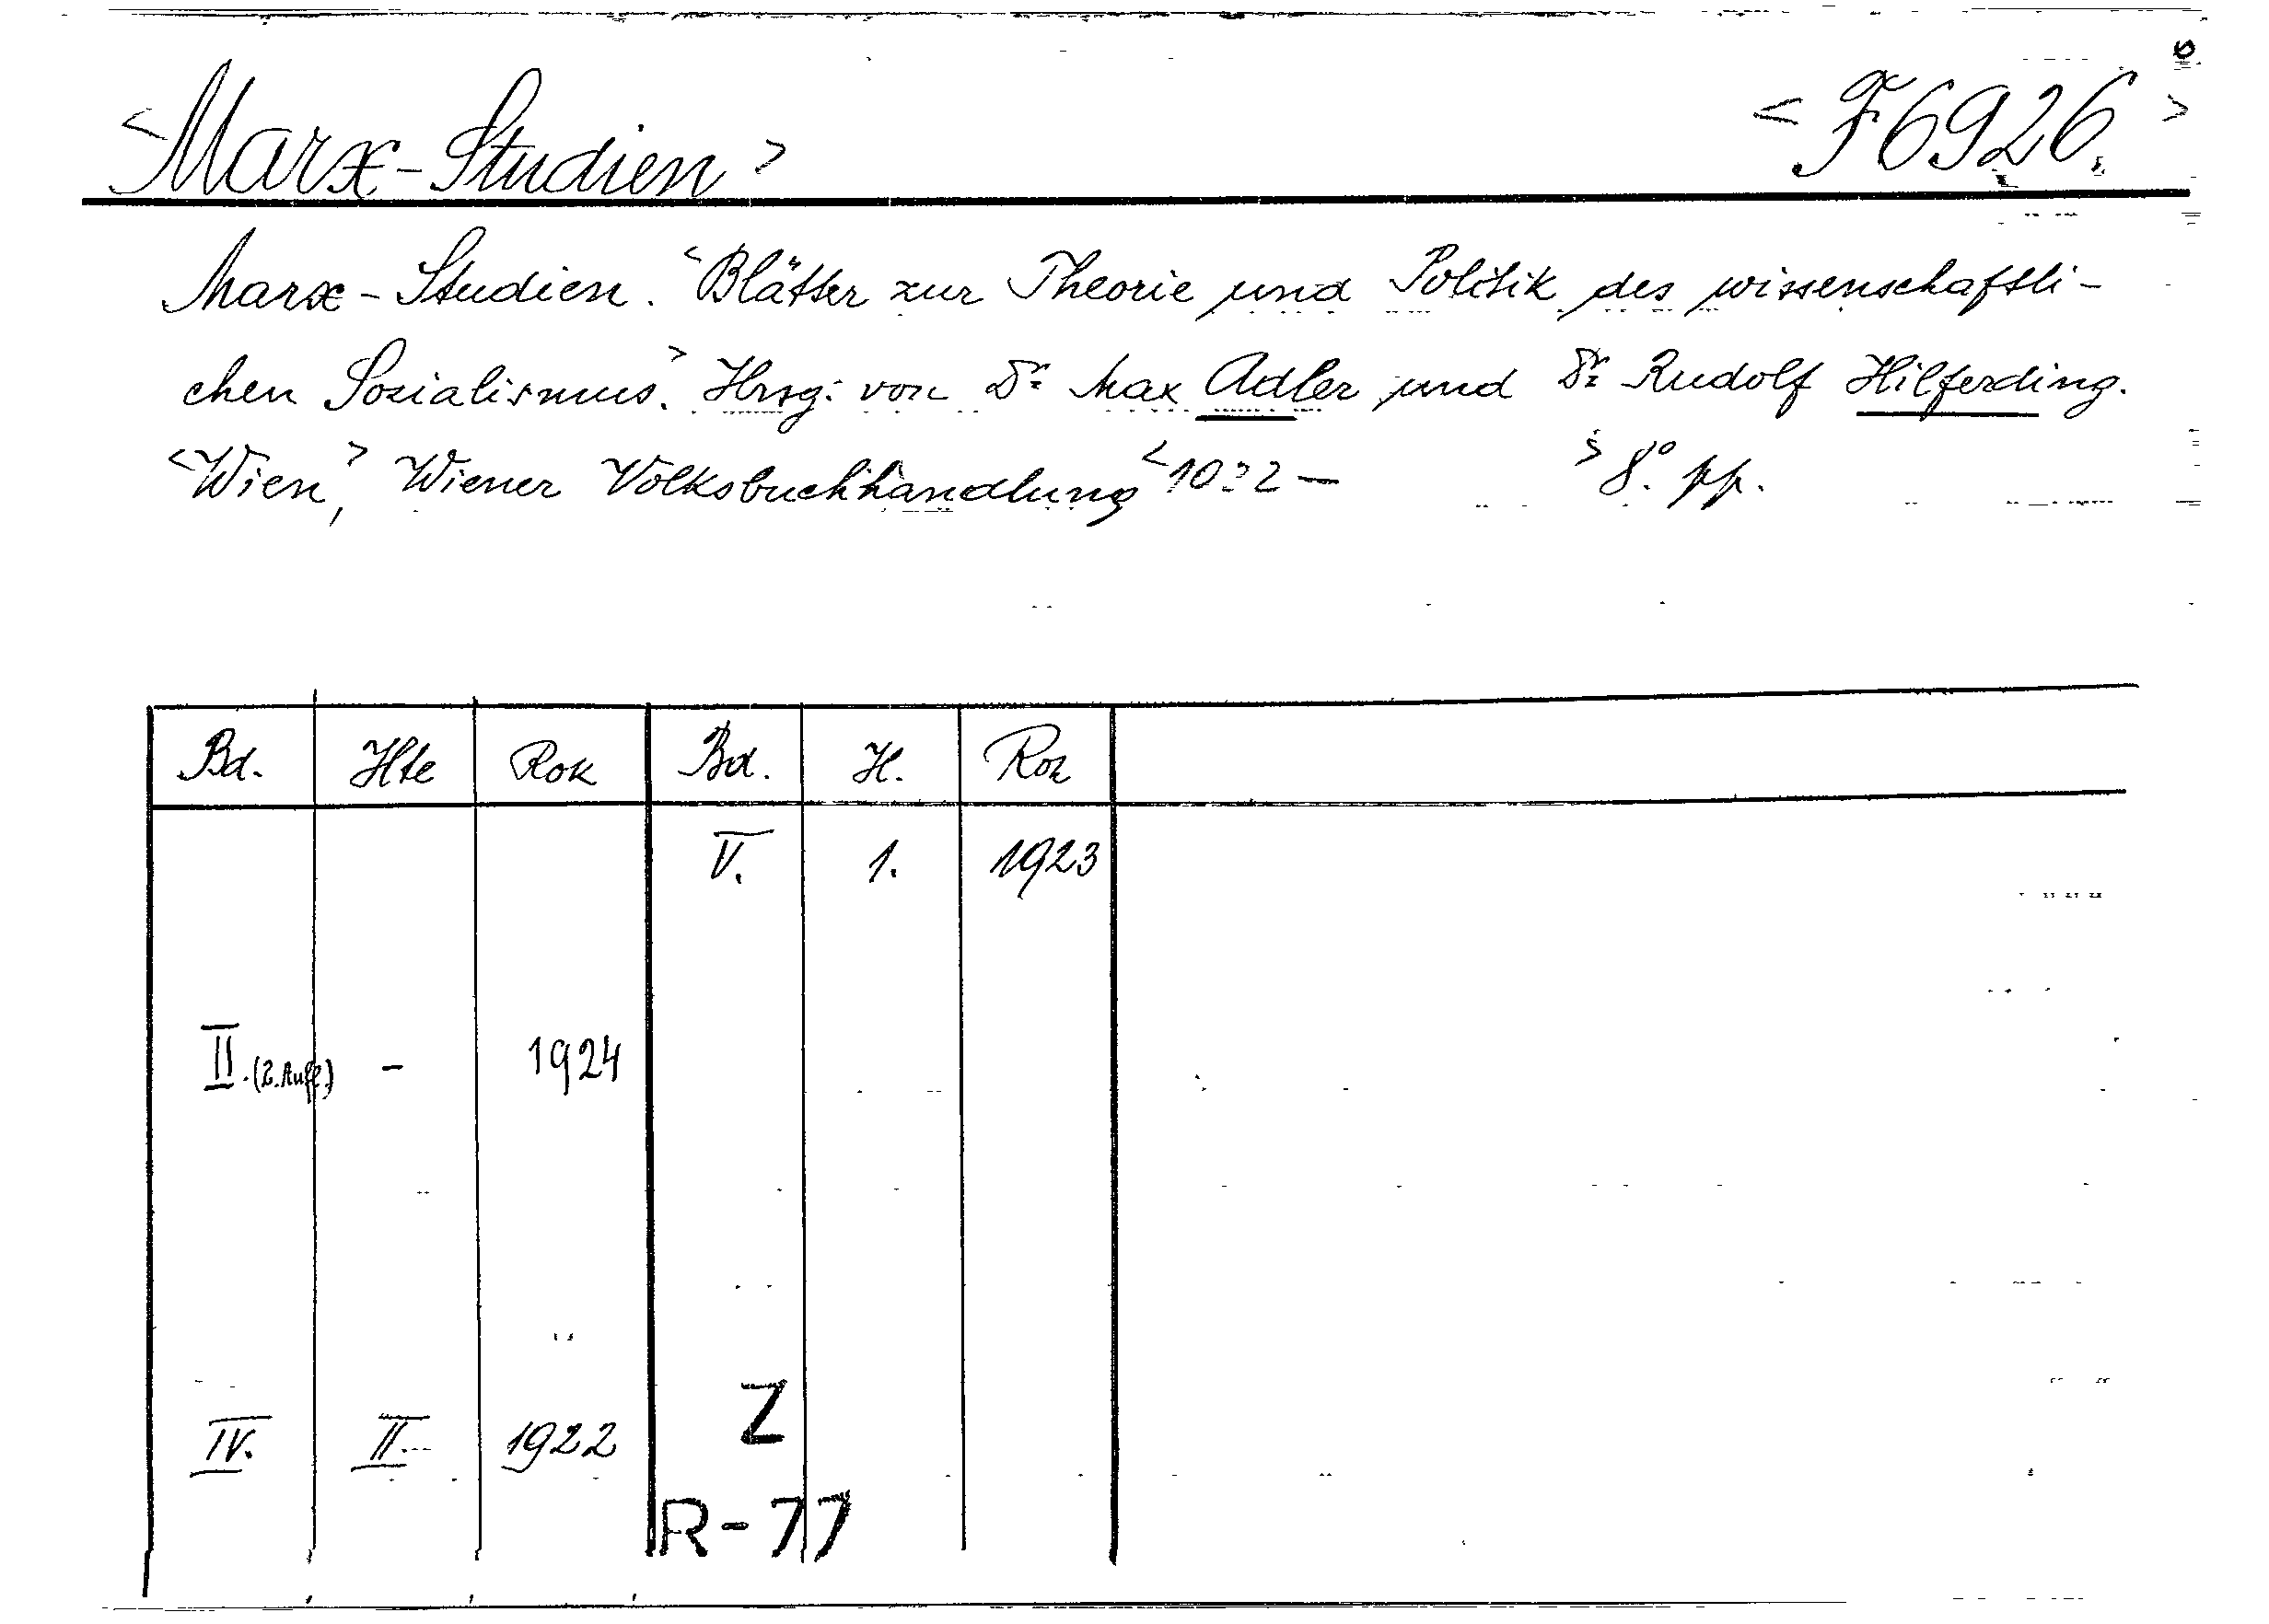 <Marx-Studien> <F6926.>
Marx-Studien. <Blätter zur Theorie und Politik des wissenschaftli-
chen Sozialismus.> Hrsg. von Dr. Max Adler und Dr. Rudolf Hilferding.
<Wien,> Wiener Volksbuchhandlung <1922- > 8°. pp.
Bd. Hte Rok Bd. H. Rok
V. 1. 1923
II. (2. Aufl.) - 1924
IV. II. 1922
Z
R-77